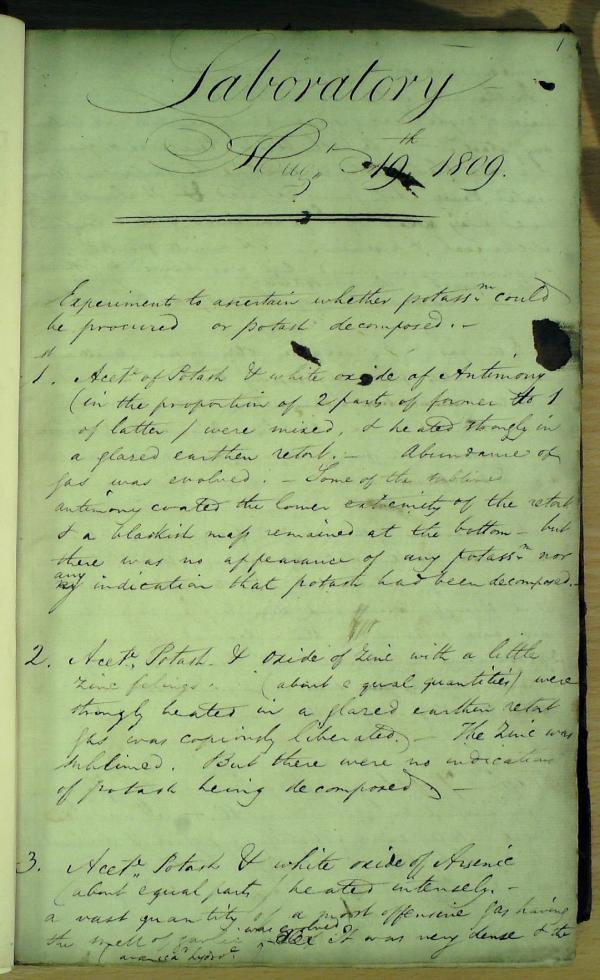 1
Laboratory
Augt 19th 1809.
Experiment to ascertain whether potassm could
be procured or potash decomposed. –
1st. Acetn of Potash & white oxide of Antimony
(in the proportion of 2 parts of former to 1
of latter / were mixed, & heated strongly in
a glazed earthen retort. – Abundance of
gas was evolved. – Some of the sublimed
antimony coated the lower extremity of the retort
& a blackish mass remained at the bottom – but
there was no appearance of any potassm nor
any indication that potash had been decomposed. –
2. Acetn. Potash & oxide of Zinc with a little
Zinc filings. (about equal quantities) were
strongly heated in a glazed earthen retort
gas was copiously liberated. – The Zinc was
sublimed. But there were no indications
of potash being decomposed –
3. Acetn Potash & white oxide of Arsenic
(about equal parts heated intensely. –
a vast quantity of a most offensive gas having
the smell of garlic was evolved It was very dense & the